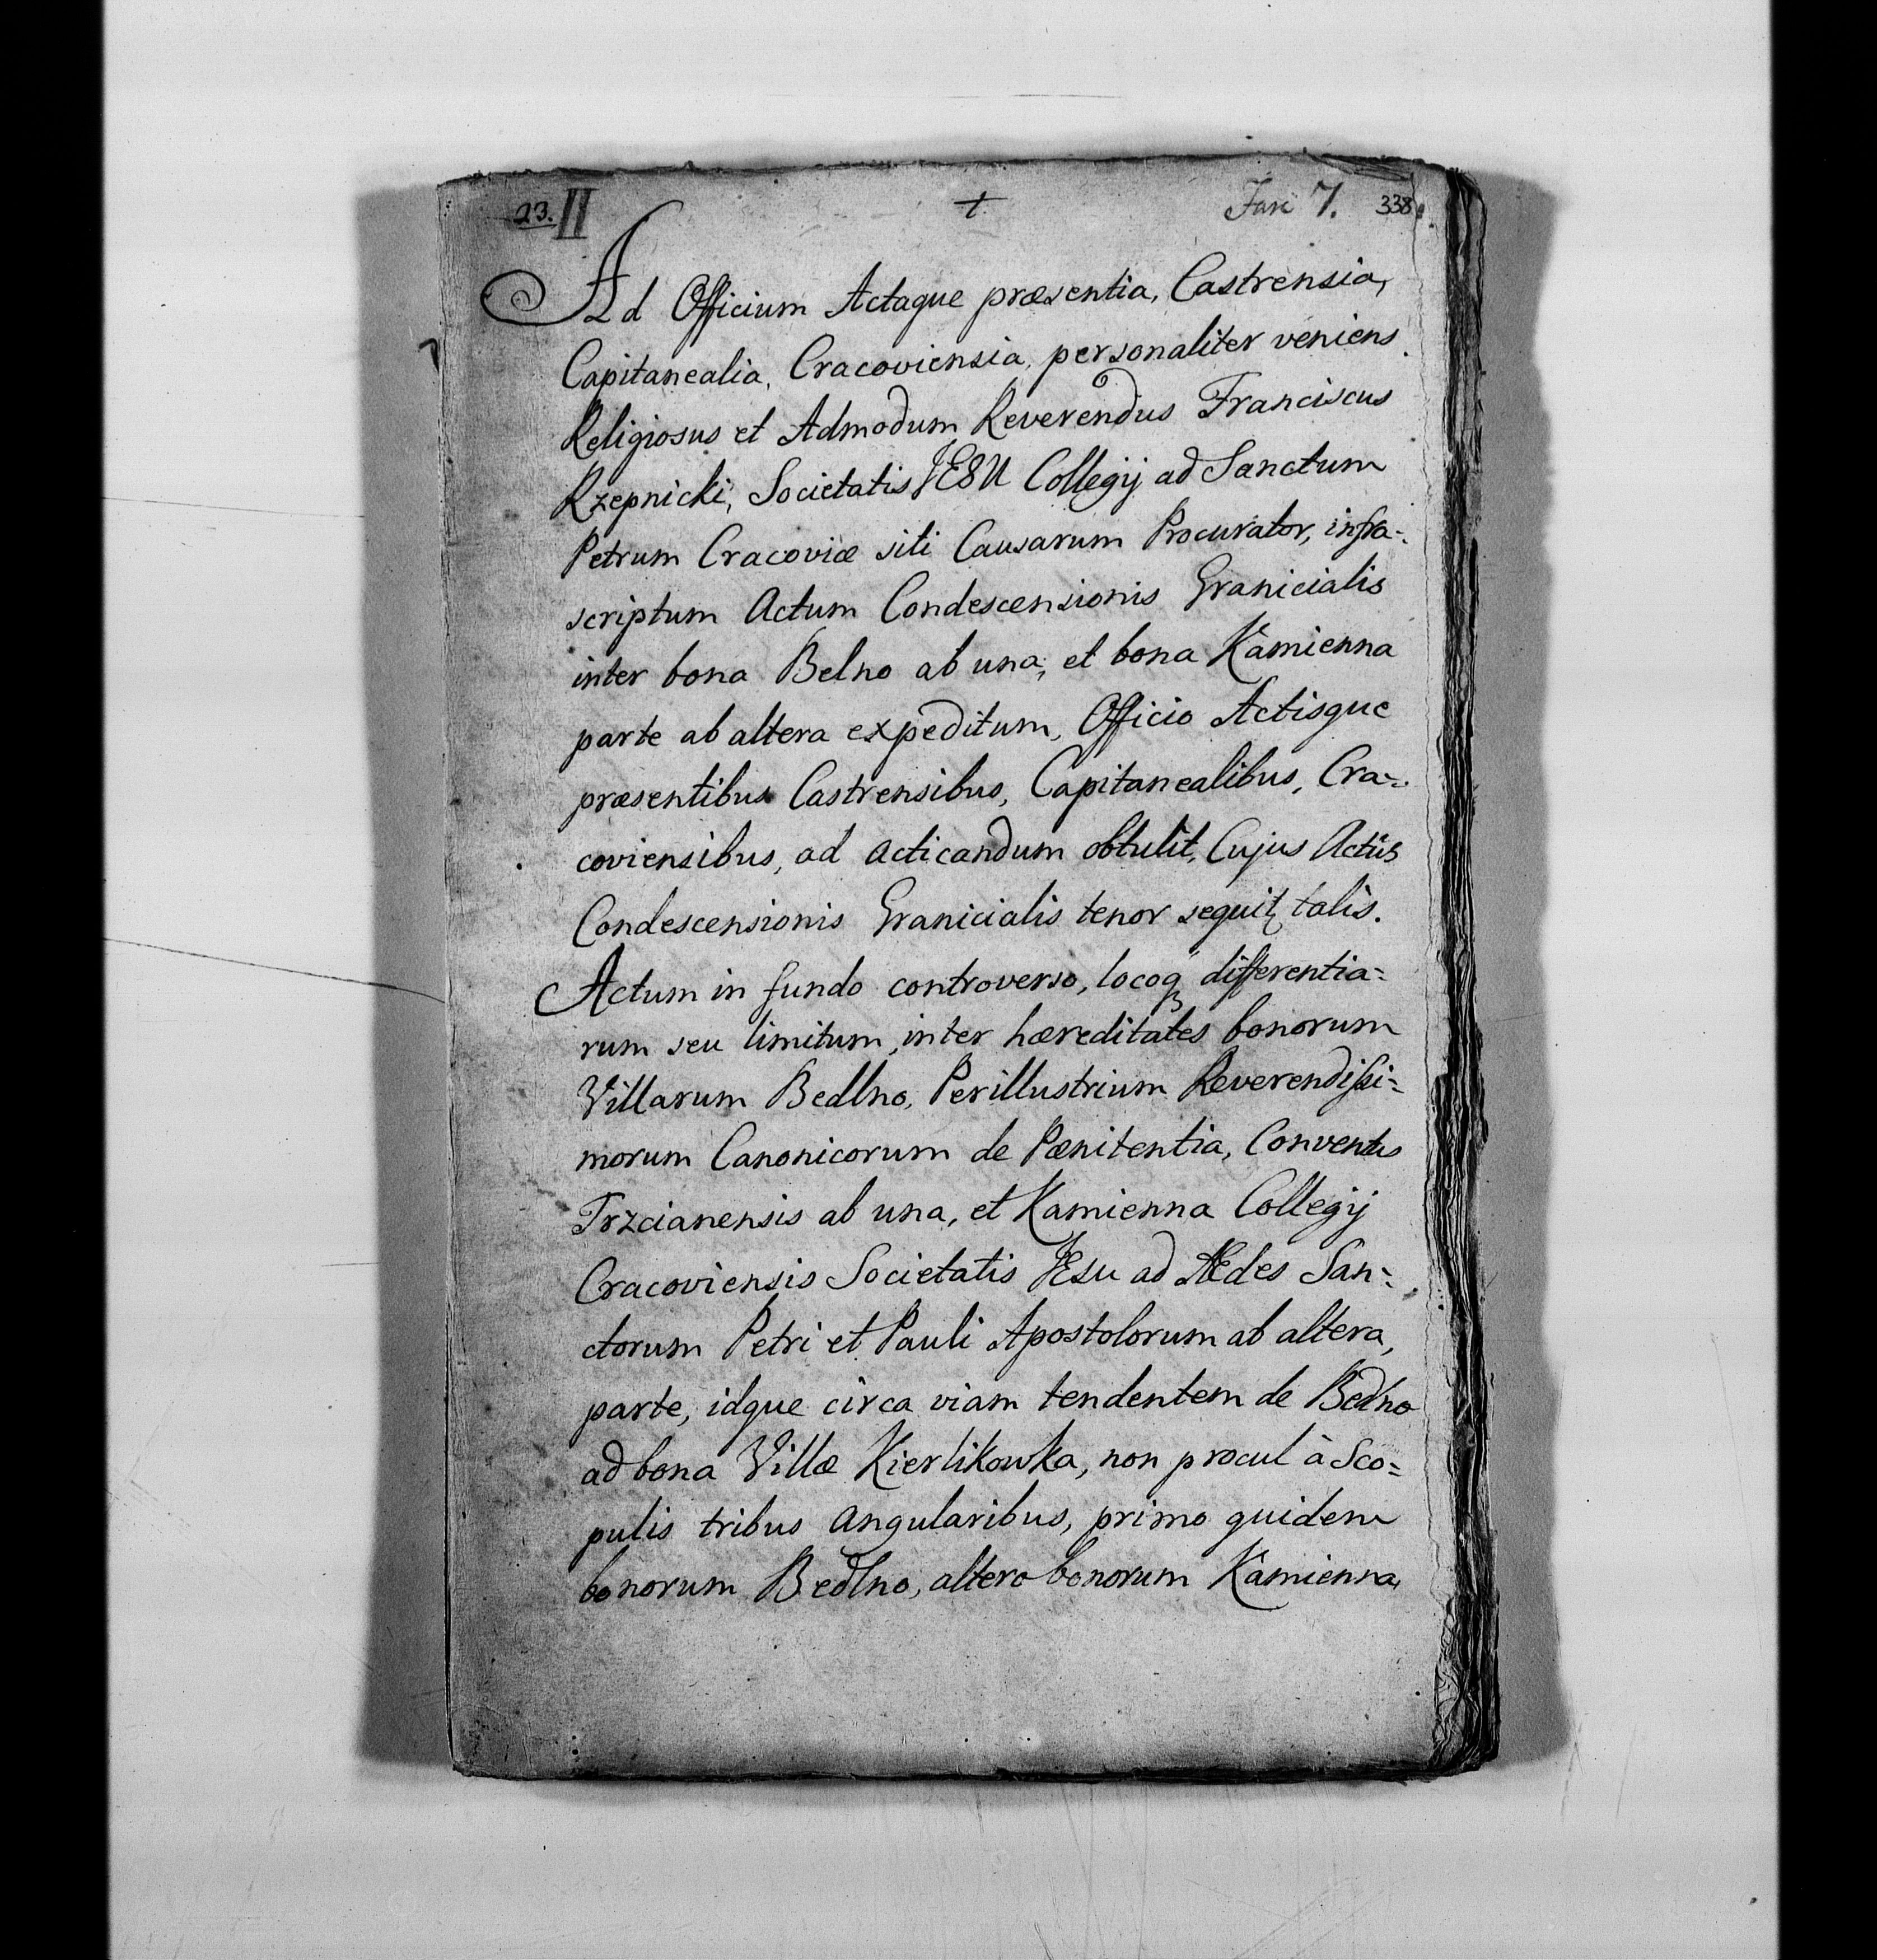 23. II † Fasc 7. 338
Ad Officium Actaque præsentia, Castrensia,
Capitanealia, Cracoviensia, personaliter veniens
Religiosus et Admodum Reverendus Franciscus
Rzepnicki, Societatis JESU Collegij ad Sanctum
Petrum Cracoviæ siti Causarum Procurator, infra-
scriptum Actum Condescensionis Granicialis
inter bona Belno ab una, et bona Kamienna
parte ab altera expeditum, Officio Actisque
præsentibus Castrensibus, Capitanealibus, Cra-
coviensibus, ad acticandum obtulit, Cujus Actûs
Condescensionis Granicialis tenor sequit talis.
Actum in fundo controverso, locoq differentia-
rum seu limitum, inter hæreditates bonorum
Villarum Bedlno, Perillustrium Reverendissi-
morum Canonicorum de Pænitentia, Conventus
Trzcianensis ab una, et Kamienna Collegij
Cracoviensis Societatis JEsu ad Ædes San-
ctorum Petri et Pauli Apostolorum ab altera,
parte, idque circa viam tendentem de Bedlno
ad bona Villæ Kierlikowka, non procul à Sco-
pulis tribus angularibus, primo quidem
bonorum Bedlno, altero bonorum Kamienna,